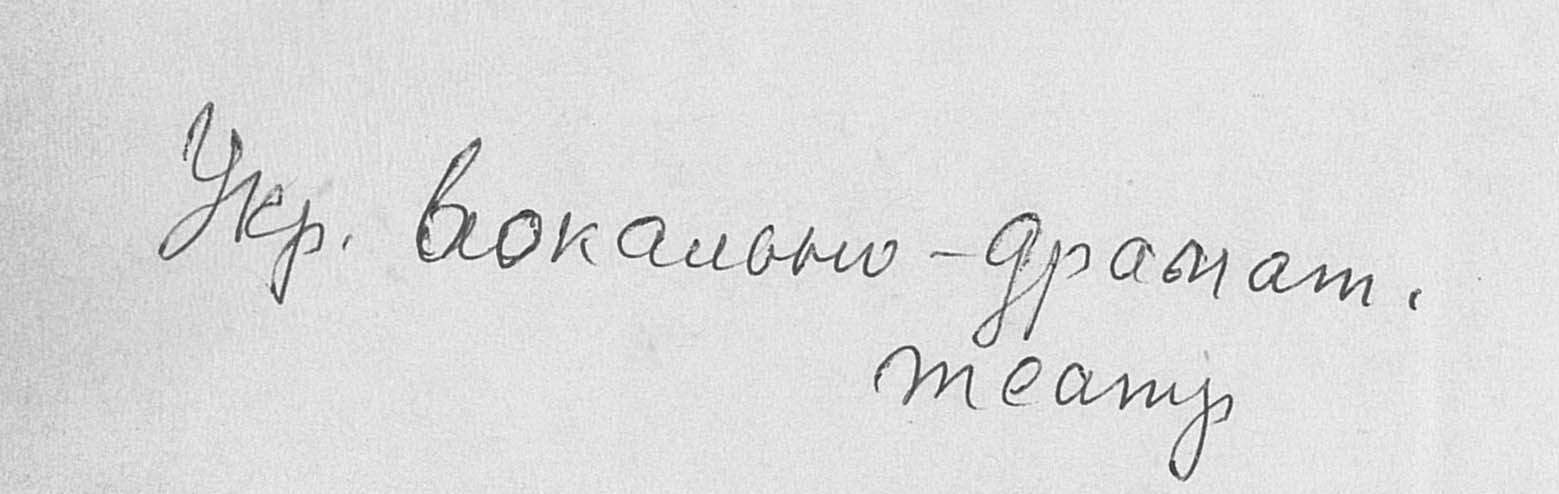 Укр. вокально-драмат.
театр